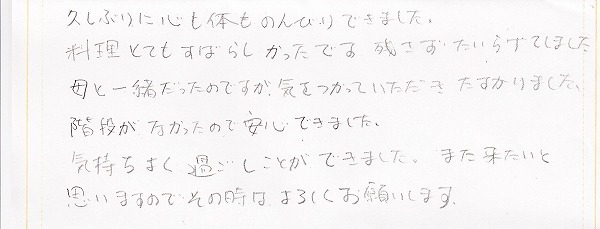 久しぶりに心も体ものんびりできました。
料理とてもすばらしかったです 残さずたいらげてしました
母と一緒だったのですが、気をつかっていただきたすかりました。
階段がなかったので安心できました。
気持ちよく過ごしことができました。また来たいと
思いますのでその時はよろしくお願いします。